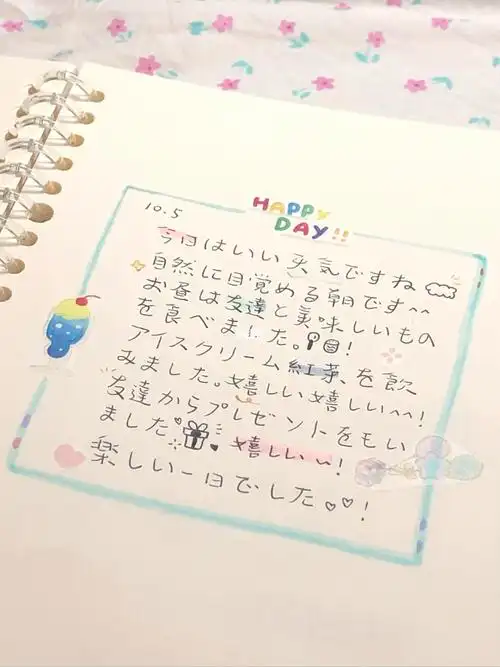 HAPPY
DAY!!
10.5
今日はいい天気ですね
自然に目覚める朝です^^
お昼は友達と美味しいもの
を食べました。!
アイスクリーム紅茶を飲
みました。嬉しい嬉しい^^!
友達からプレゼントをもい
ました 嬉しい~!
楽しい一日でした♡♡!